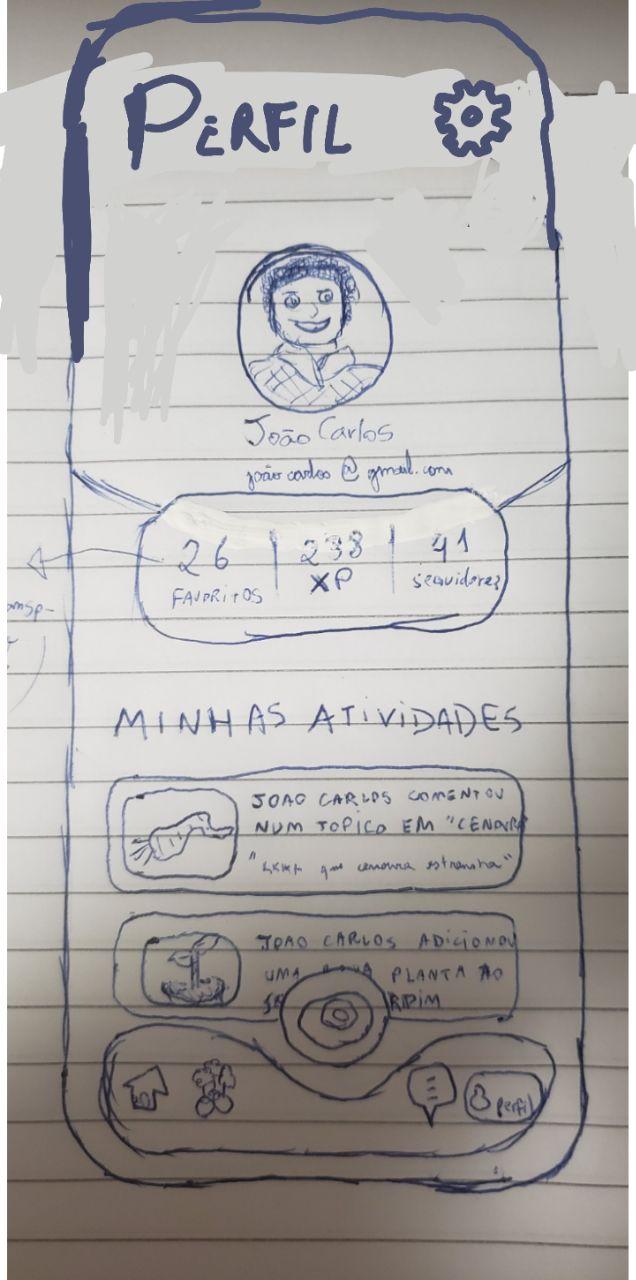 PERFIL
João Carlos
joão carlos @ gmail.com
26 | 238 | 41
FAVORITOS XP seguidores
MINHAS ATIVIDADES
JOAO CARLOS COMENTOU
NUM TOPICO EM "CENOURA
"kkkk que cenoura estranha"
JOAO CARLOS ADICIONOU
UMA NOVA PLANTA AO
perfil